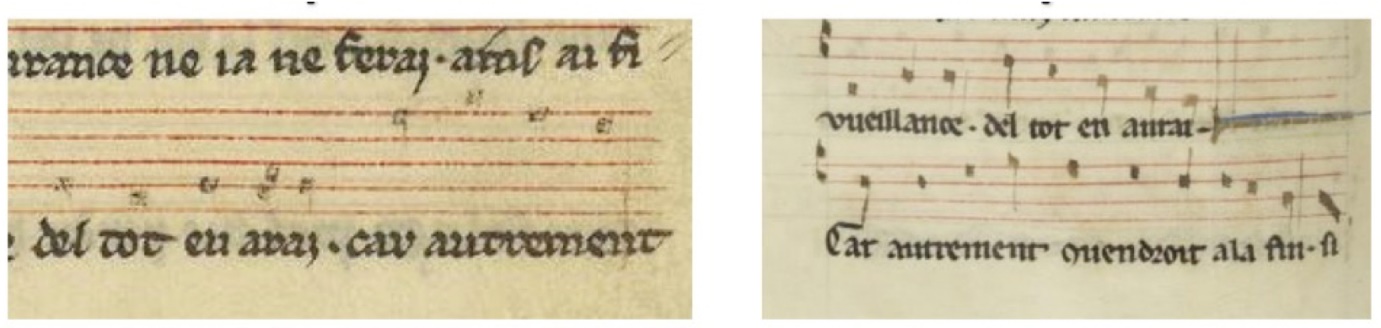 ne ia ne ferai · ains ai fi
del tot en arai · car autrement
vueillance · del tot en aurai
Car autrement quendroit a la fin · si